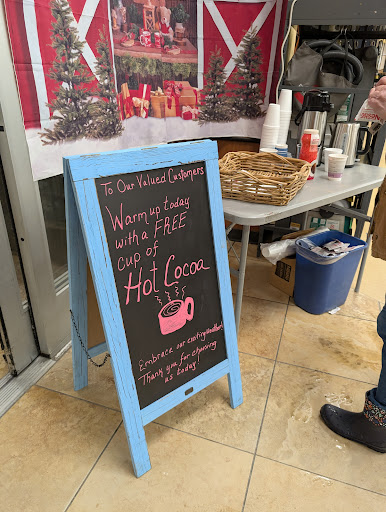 To Our Valued Customers
Warm up today
with a FREE
cup of
Hot Cocoa
Embrace our exciting
Thank you for choosing
us today!